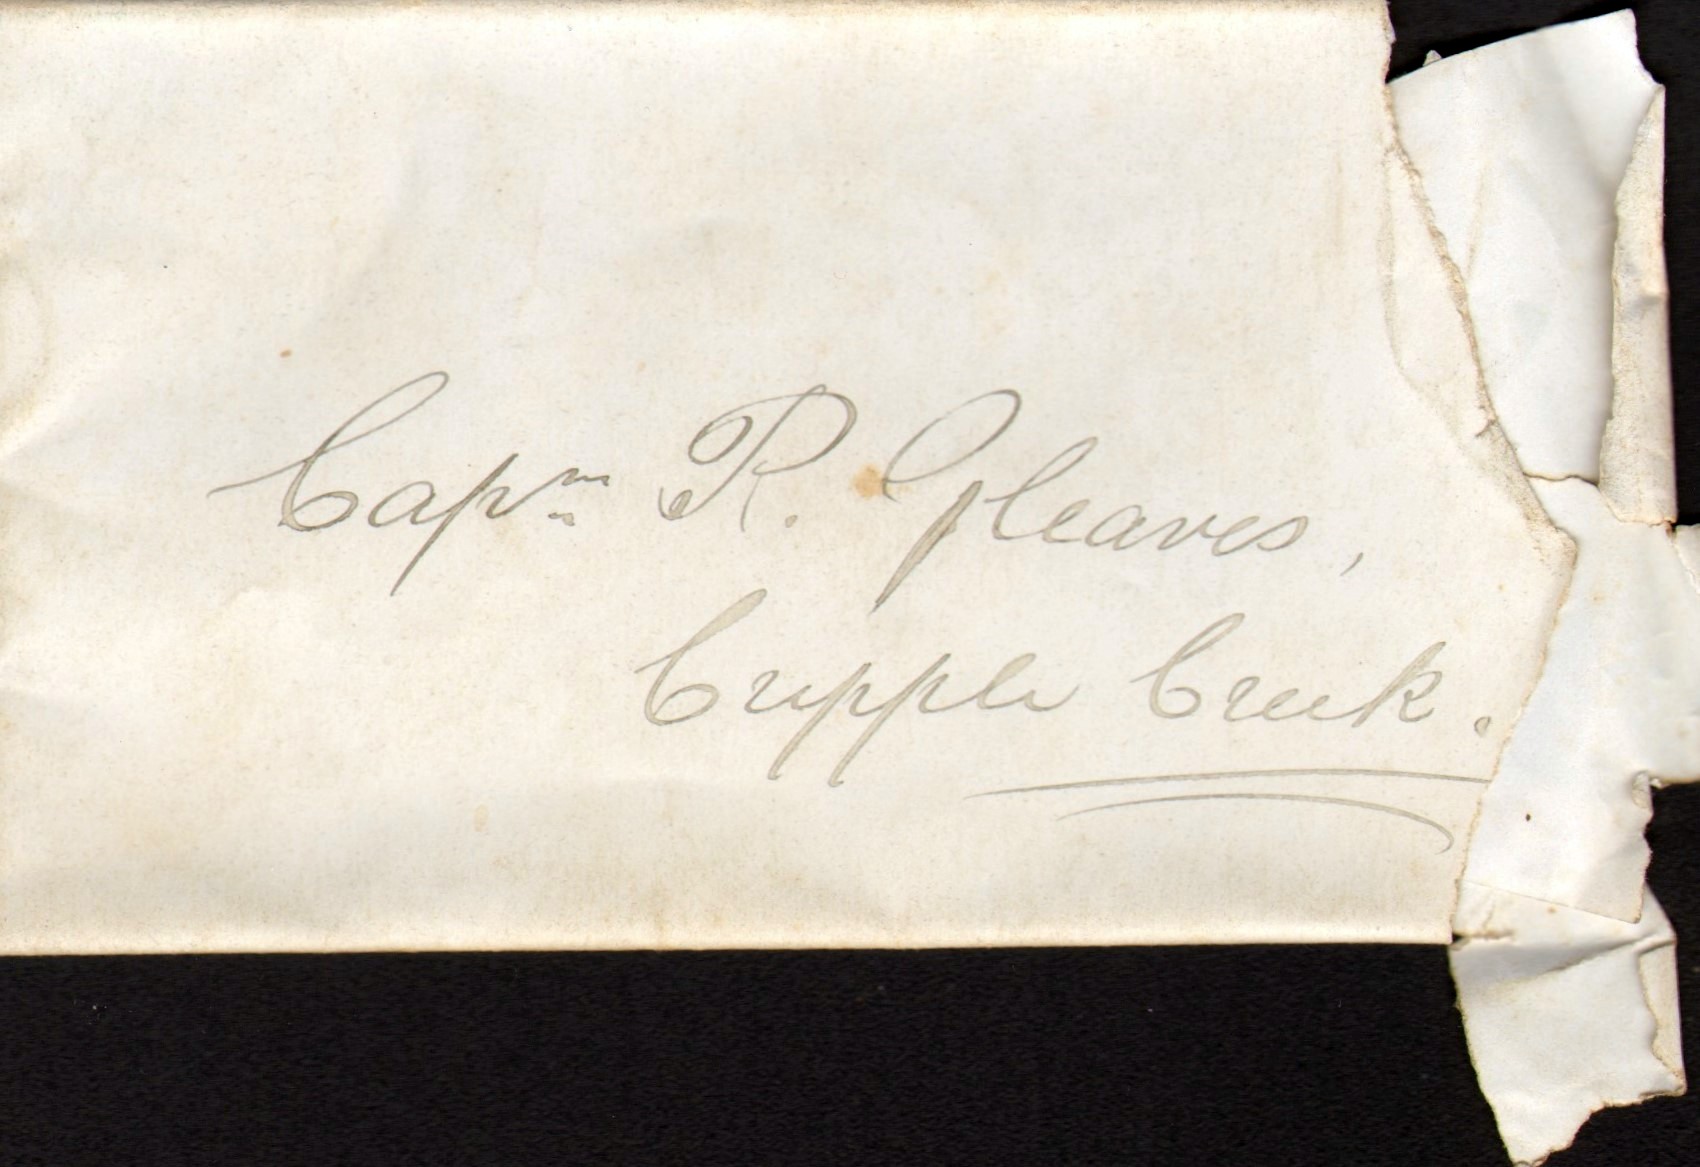 Capn. R. Gleaves,
Cripple Creek.